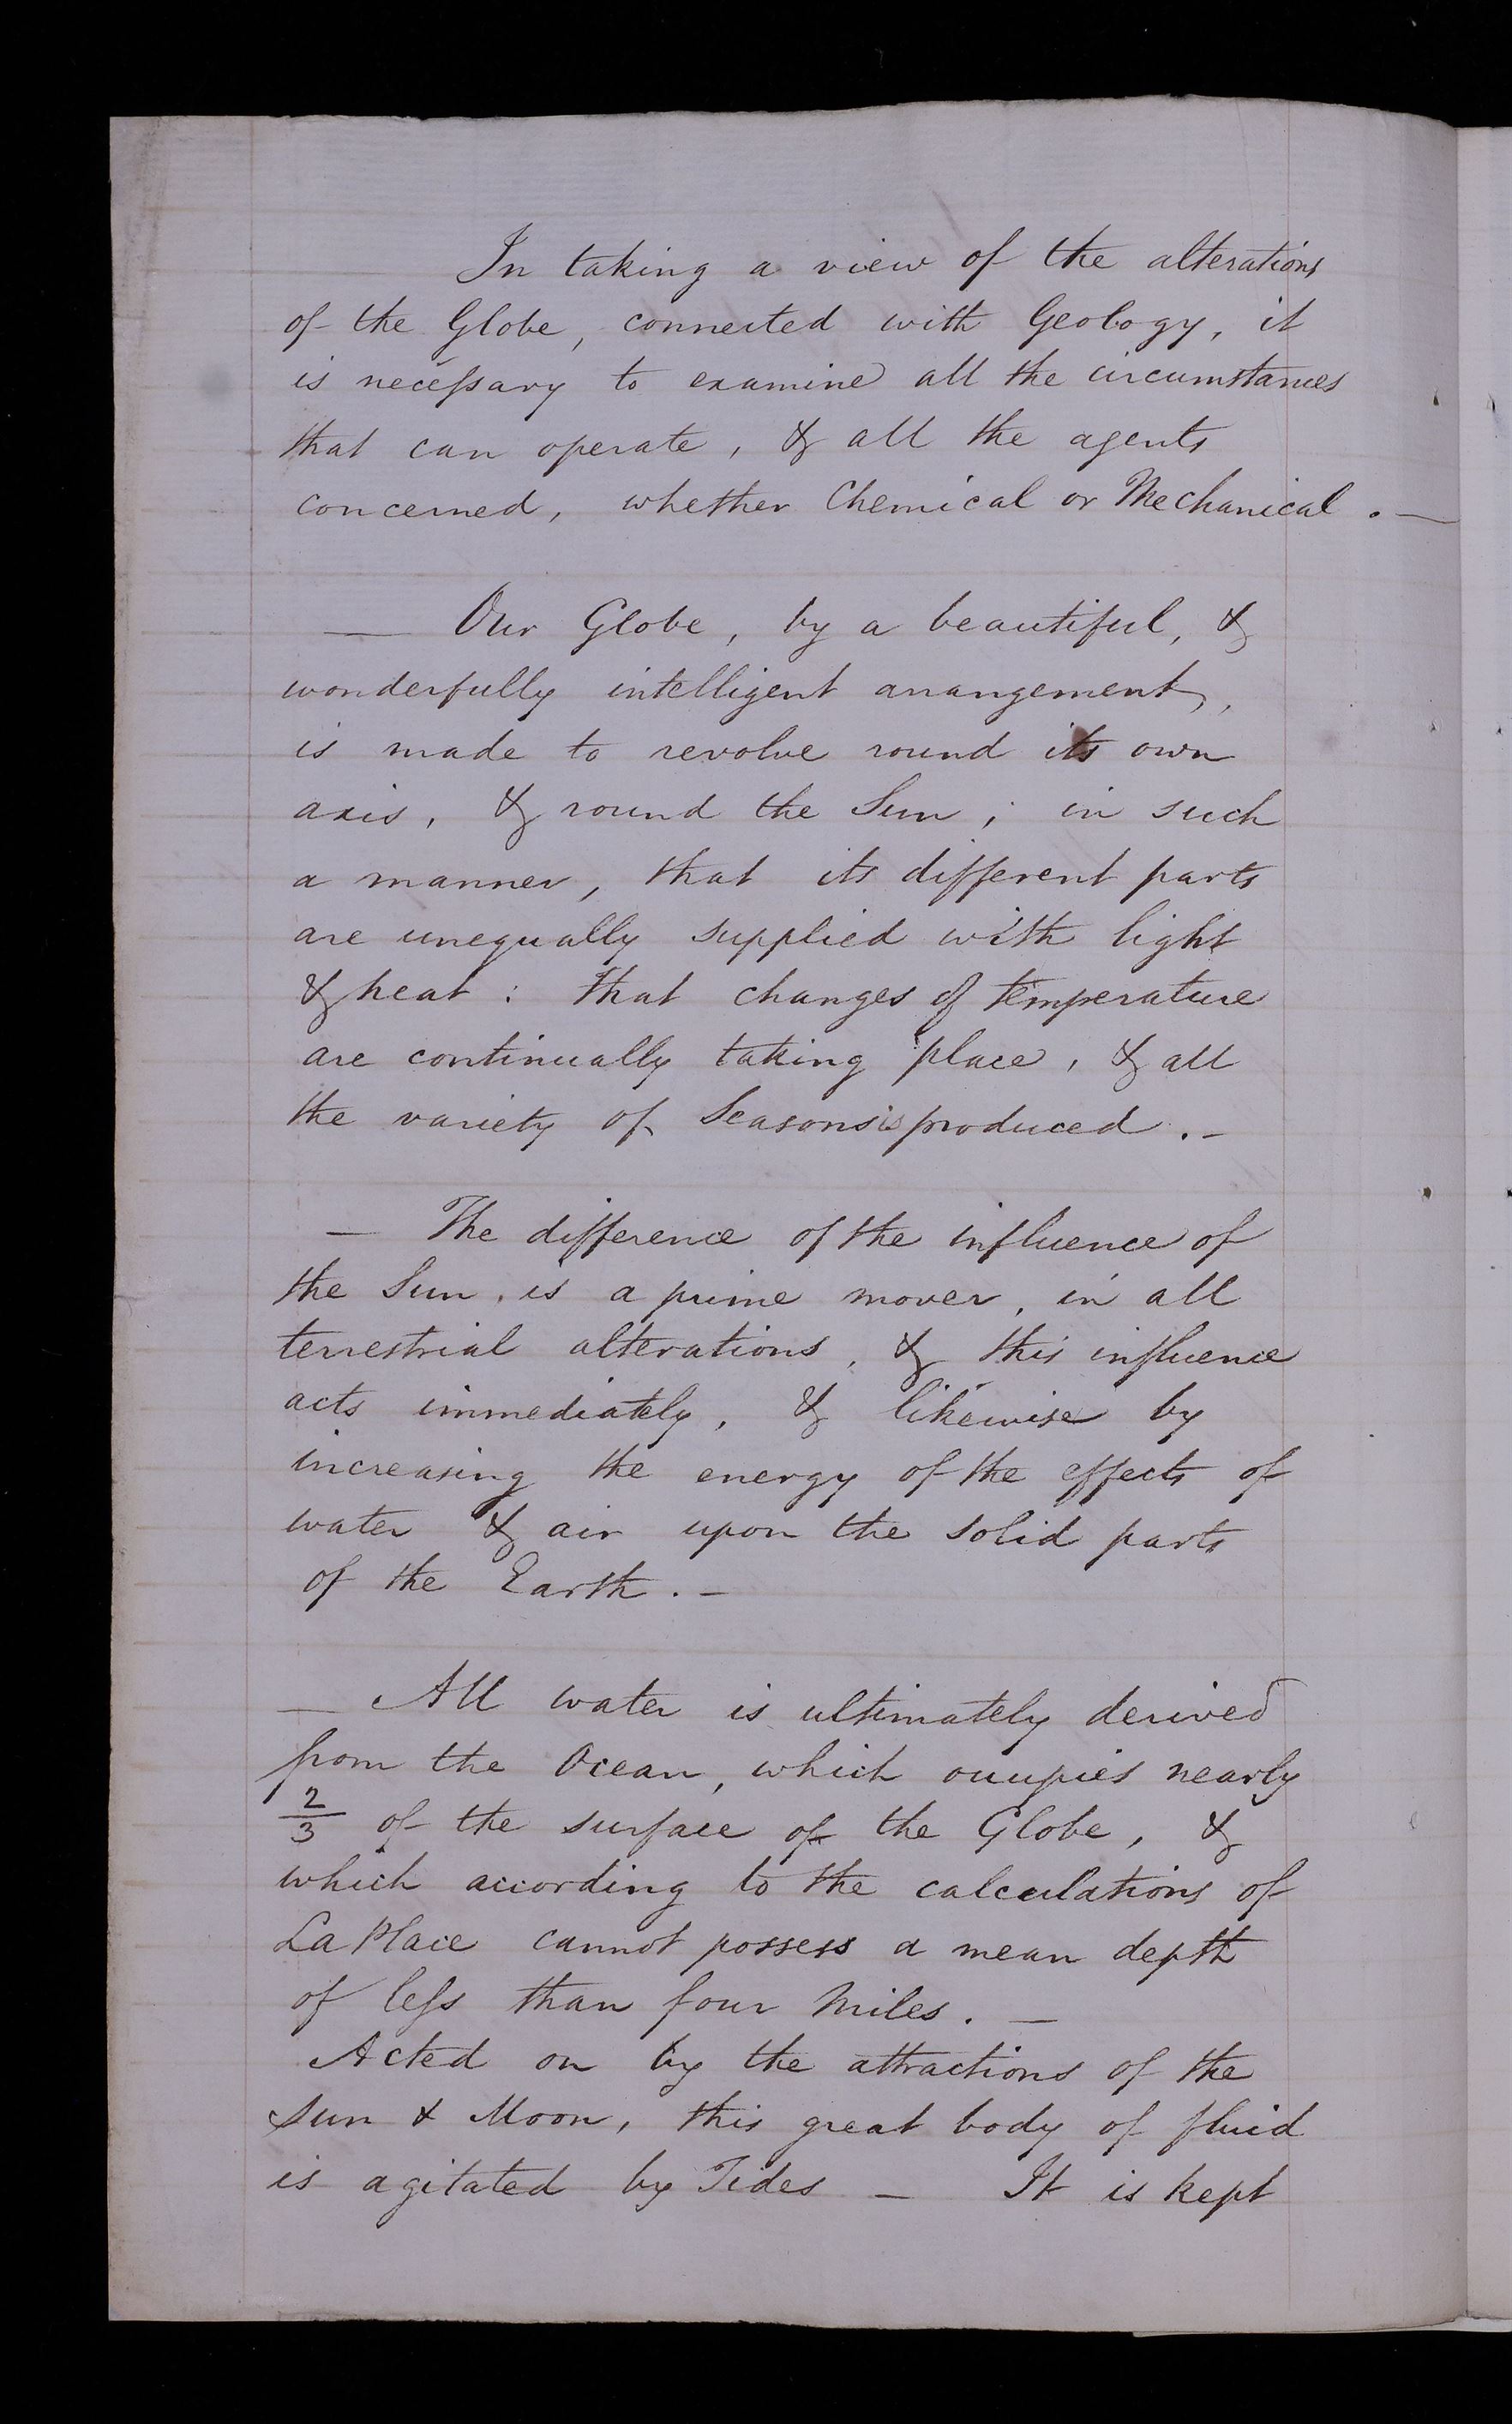 In taking a view of the alterations
of the Globe, connected with Geology, it
is neceſsary to examine all the circumstances
that can operate, & all the agents
concerned, whether Chemical or Mechanical. —
— Our Globe, by a beautiful, &
wonderfully intelligent arrangement,
is made to revolve round its own
axis, & round the Sun; in such
a manner, that its different parts
are unequally supplied with light
& heat: that changes of temperature
are continually taking place, & all
the variety of Seasons is produced. –
— The difference of the influence of
the Sun, is a prime mover, in all
terrestrial alterations, & this influence
acts immediately, & likewise by
increasing the energy of the effects of
water & air upon the solid parts
of the Earth. –
— All water is ultimately derived
from the Ocean, which occupies nearly
2/3 of the surface of the Globe, &
which according to the calculations of
La Place cannot possess a mean depth
of leſs than four Miles. —
Acted on by the attractions of the
Sun & Moon, this great body of fluid
is agitated by Tides – It is kept